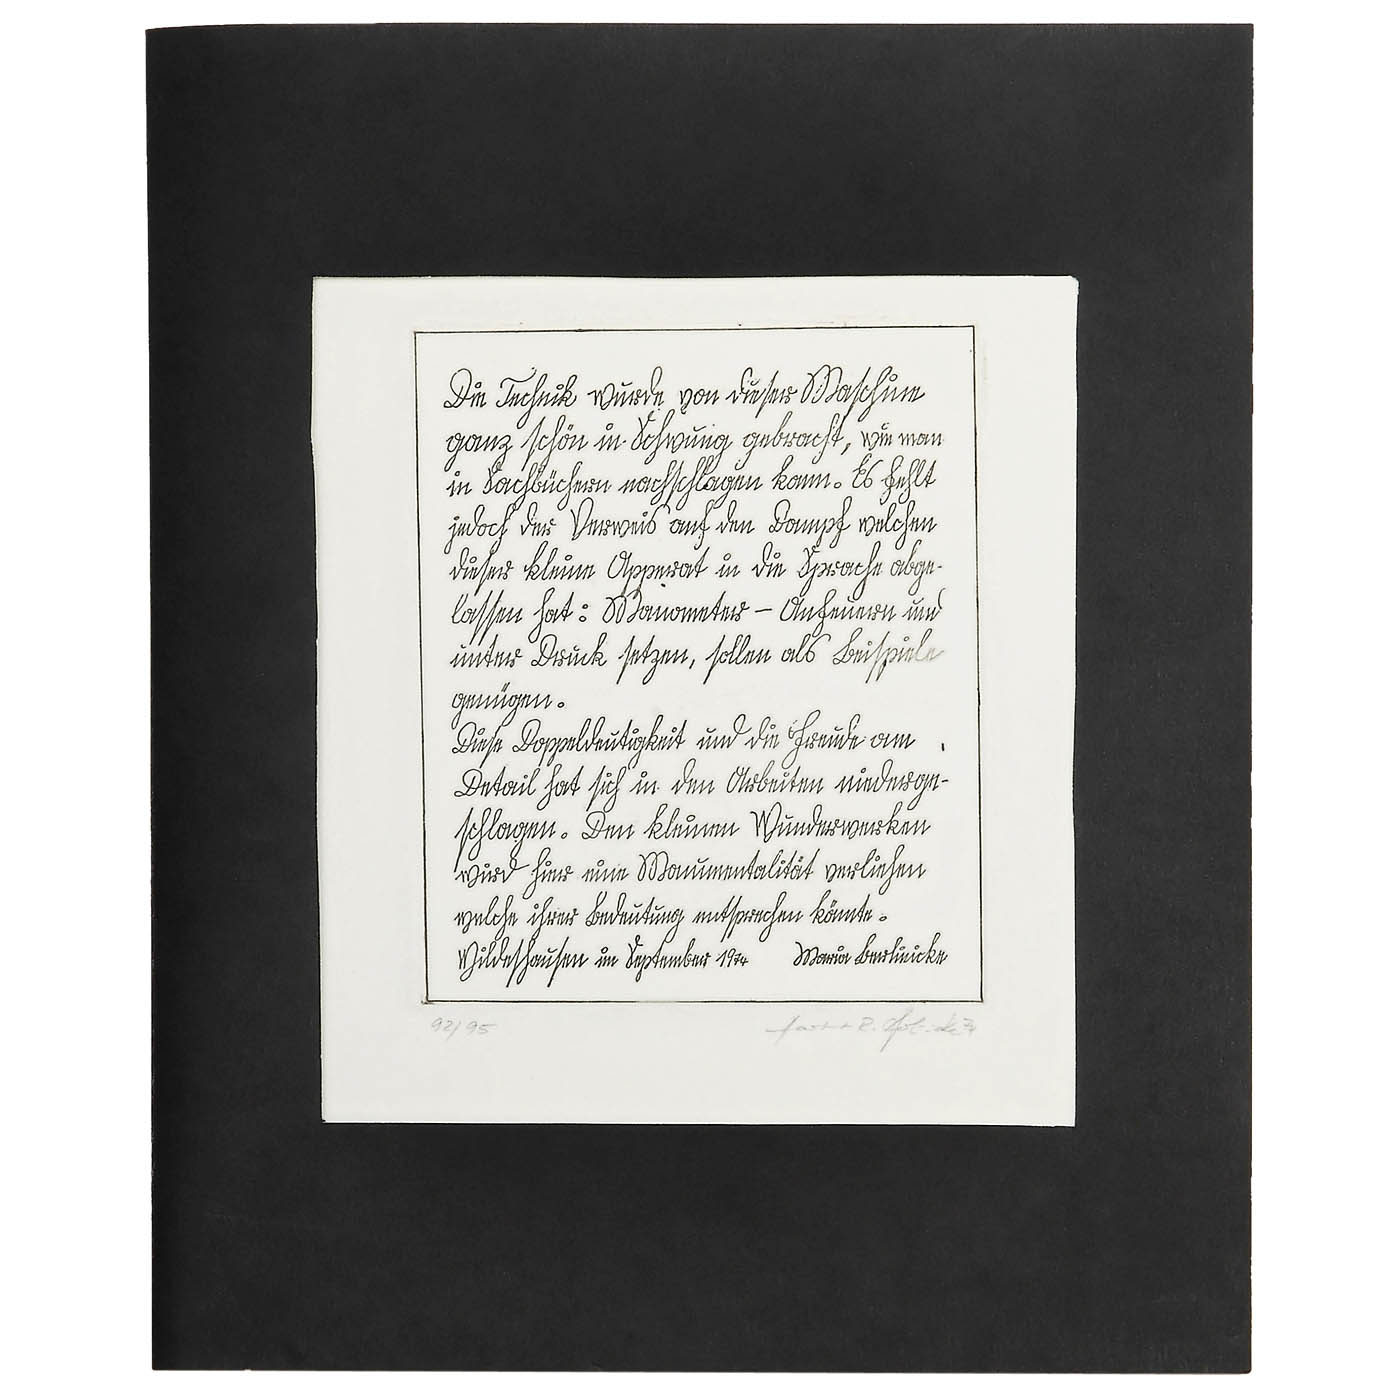 Die Technik wurde von dieser Maschine
ganz schön in Schwung gebracht, wie man
in Sachbüchern nachschlagen kann. Es fehlt
jedoch der Verweis auf den Dampf welchen
dieser kleine Apperat in die Sprache abge-
lassen hat: Manometer – Anfeuern und
unter Druck setzen, sollen als Beispiele
genügen.
Diese Doppeldeutigkeit und die Freude am
Detail hat sich in den Arbeiten niederge-
schlagen. Den kleinen Wunderwerken
wird hier eine Monumentalität verliehen
welche ihrer Bedeutung entsprechen könnte.
Wildeshausen im September 1974 Maria Berlinicke
92/95